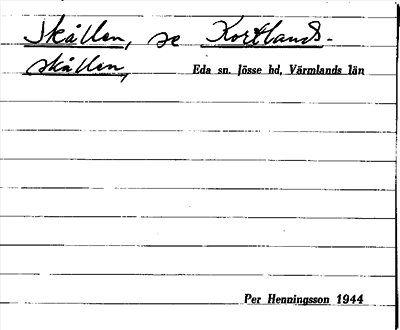 Skållen, se Kortlands-
skållen,
Eda sn. Jösse hd, Värmlands län
Per Henningsson 1944